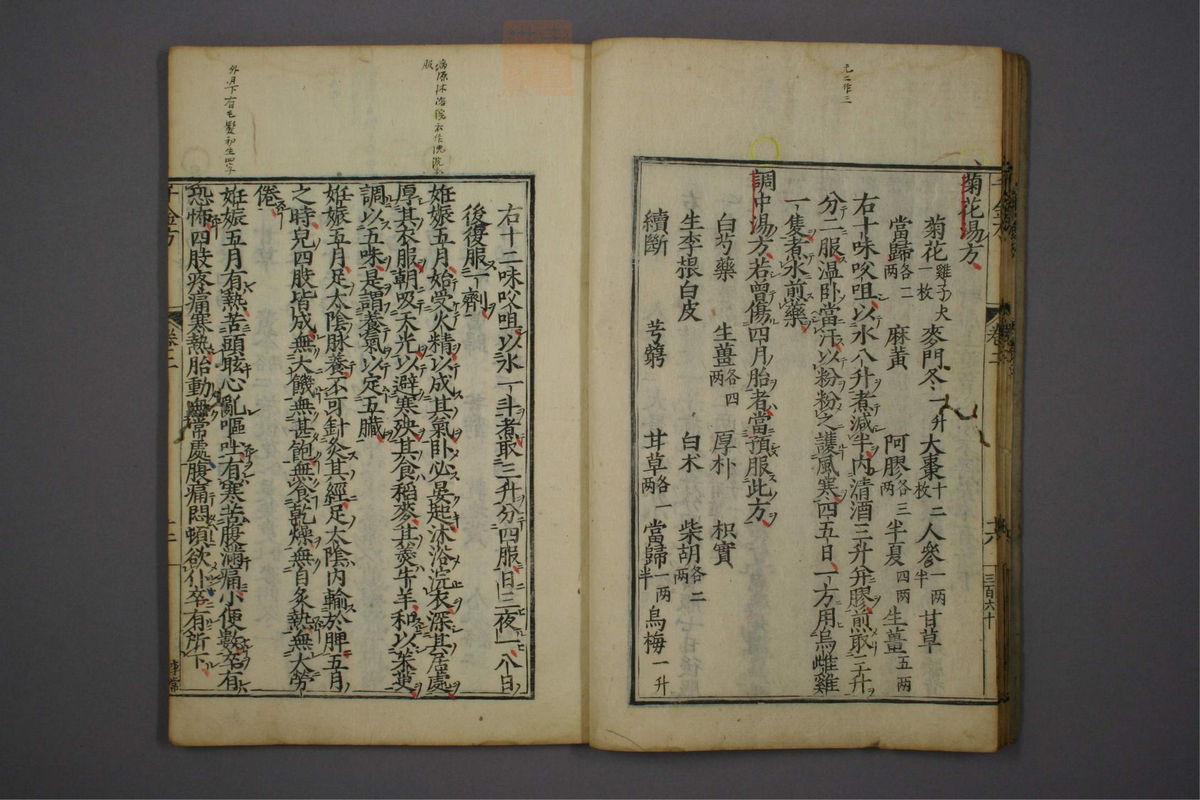 元二作三
菊花湯方
菊花雞子大一枚 麥門冬一升 大棗十二枚 人參一兩半 甘草
當歸各二兩 麻黃 阿膠各三兩 半夏四兩 生薑五兩
右十味㕮咀以水八升煮減半内清酒三升并膠煎取三升
分二服温卧當汗以粉粉之護風寒四五日一方用烏雌雞
一隻煮水煎藥
調中湯方若曾傷四月胎者當預服此方
白芍藥 生薑各四兩 厚朴 枳實
生李根白皮 白术 柴胡各二兩
續斷 芎藭 甘草各一兩 當歸一兩半 烏梅一升
卷二
六
三百六十
右十二味㕮咀以水一斗煮取三升分四服日三夜一八日
後復服一劑
姙娠五月始受火精以成其氣卧必晏起沐浴浣衣深其居處
厚其衣服朝吸天光以避寒殃其食稻麥其羹牛羊和以茱萸
調以五味是謂養氣以定五臟
姙娠五月足太陰脉養不可針灸其經足太陰内輸於脾五月
之時兒四肢皆成無大饑無甚飽無食乾燥無自炙熱無大勞
倦
姙娠五月有熱苦頭眩心亂嘔吐有寒苦腹滿痛小便數卒有
恐怖四肢疼痛寒熱胎動無常處腹痛悶頓欲仆卒有所下
千金方
卷二